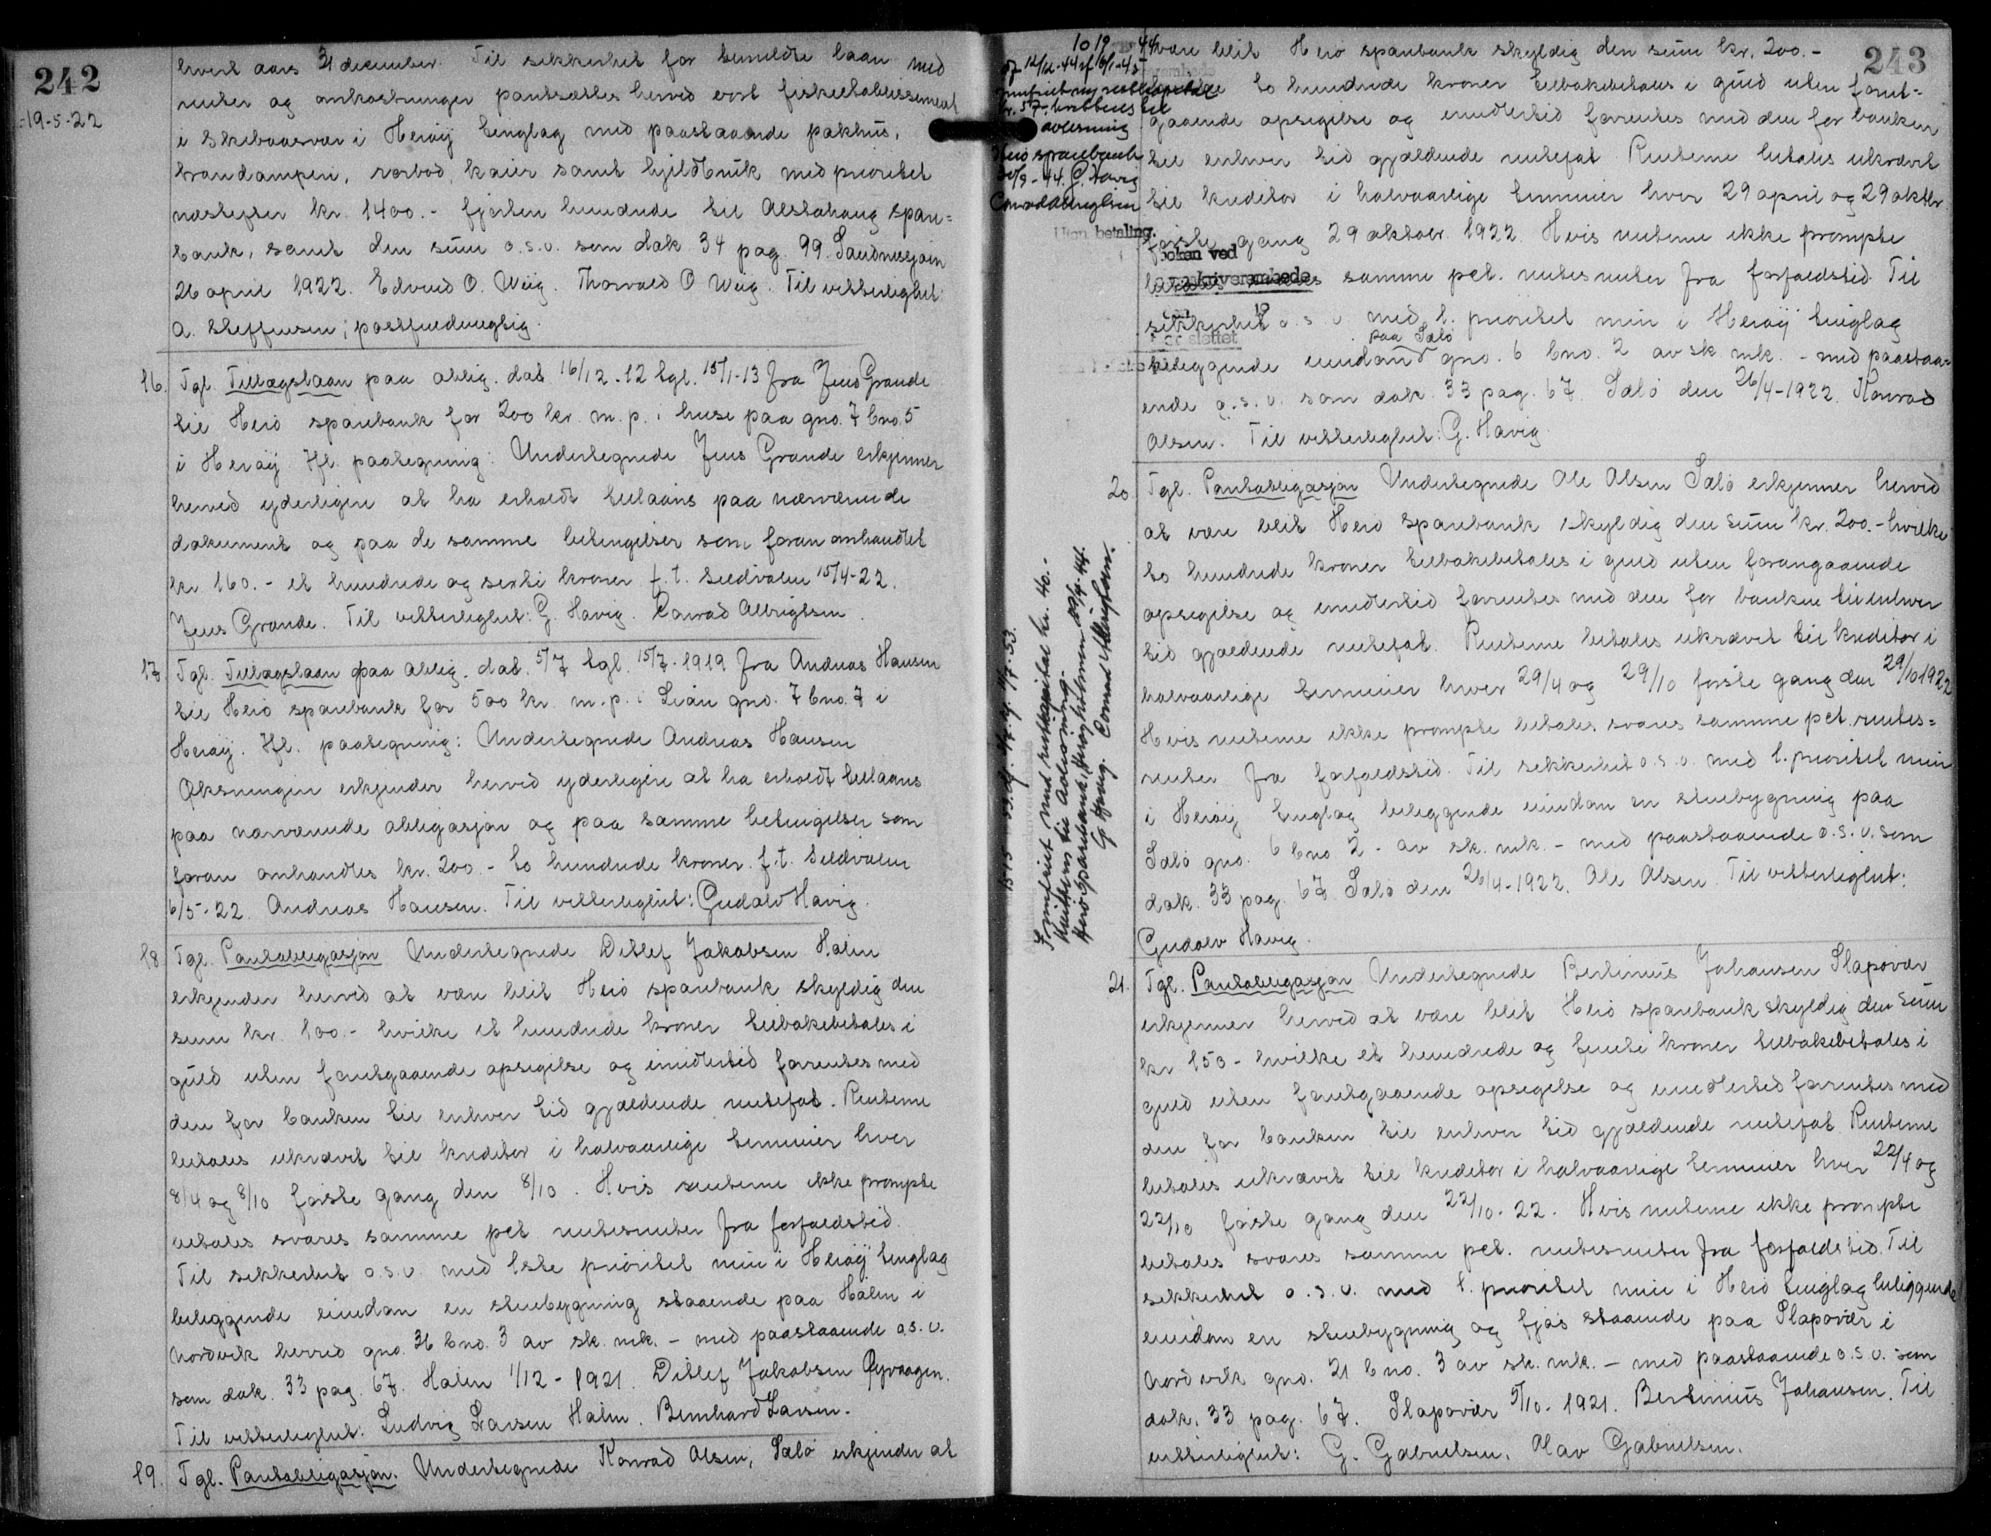 242
19-5-22
hvert aars 31 december. Til sikkerhet for bemeldte laan med
renter og omkostninger pantsættes herved vort fiskeetablissement
i Skibaasvær i Herøy tinglag med paastaaende pakhus,
trandamperi, rorbod, kaier samt hjeldbruk med prioritet
næstefter kr. 1400.- fjorten hundrede til Alstahaug spare=
bank, samt den sum o.s.v. som dok 34 pag. 99. Sandnessjøen
26 april 1922. Edvard O. Weig. Thorvald O Weig. Til vitterlighet:
A. Steffensen; postfuldmegtig.
16. Tgl. Tillægslaan paa oblig. dat 16/12-12 tgl. 15/1-13 fra Jens Grande
til Herø sparebank for 200 kr. m. p. i huse paa gno. 7 bno. 5
i Herøy Hfl. paategning: Undertegnede Jens Grande erkjenner
herved yderligere at ha erholdt tillaans paa nærværende
dokument og paa de samme betingelser som foran omhandlet
kr 160.- et hundrede og seksti kroner. f. t. Seldvalen 15/4-22.
Jens Grande. Til vitterlighet: G. Havig. Conrad Albrigtsen.
17 Tgl. Tillægslaan paa oblig. dat. 5/7 tgl. 15/7-1919 fra Andreas Hansen
til Herø sparebank for 500 kr. m. p. i gno. 7 bno. 7 i
Herøy. Hfl. paategning: Undertegnede Andreas Hansen
Øksningen erkjender herved yderligere at ha erholdt tillaans
paa nærværende obligasjon og paa samme betingelser som
foran omhandles kr. 200 - to hundrede kroner. f.t. Seldvalen
6/5-22. Andreas Hansen. Til vitterlighet: Gudolv Havig.
18 Tgl. Pantobligasjon Undertegnede Ditlef Jakobsen Holm
erkjender herved at være blit Herø sparebank skyldig den
sum kr. 100.- hvilke et hundrede kroner tilbakebetales i
guld uten forutgaaende opsigelse og imidlertid forrentes med
den for banken til enhver tid gjældende rentefot. Renterne
betales ukrævet til kreditor i halvaarlige terminer hver
8/4 og 8/10 første gang den 8/10. Hvis renterne ikke prompte
betales svares samme pct rentesrenter fra forfaldstid.
Til sikkerhet o.s.v. med 1ste prioritet min i Herøy tinglag
beliggende eiendom en stuebygning staaende paa Holm i
Nordvik herred gno. 31 bno. 3 av sk. mk. - med paastaaende o.s.v.
som dok. 33 pag. 67. Holm 1/12-1921. Ditlef Jakobsen Øyvaagen.
Til vitterlighet: Ludvig Larsen Holm. Bernhard Larsen.
19. Tgl. Pantobligasjon. Undertegnede Konrad Olsen, Sælø erkjender at
243
være blit Herø sparebank skyldig den sum kr. 200.-
to hundrede kroner tilbakebetales i guld uten forut=
gaaende opsigelse og imidlertid forrentes med den for banken
til enhver tid gjældende rentefot. Renterne betales ukrævet
til kreditor i halvaarlige terminer hver 29 april og 29 oktbr
første gang 29 oktober 1922. Hvis renterne ikke prompte
samme pct. rentesrenter fra forfaldstid. Til
sikkerhet o.s.v. med 1. prioritet min i Herøy tinglag
beliggende eiendom paa Sælø gno. 6 bno. 2 av sk mk. - med paastaa=
ende o.s.v. som dok. 33 pag. 67. Sælø den 26/4-1922. Konrad
Olsen. Til vitterlighet: G. Havig.
Herø sparebank
G. Havig
Conrad Albrigtsen
Uten betaling.
20. Tgl. Pantobligasjon Undertegnede Ole Olsen Sælø erkjenner herved
at være blit Herø sparebank skyldig den sum kr. 200.- hvilke
to hundrede kroner tilbakebetales i guld uten forangaaende
opsigelse og imidlertid forrentes med den for banken til enhver
tid gjældende rentefot. Renterne betales ukrævet til kreditor i
halvaarlige terminer hver 29/4 og 29/10 første gang den 29/10 1922
Hvis renterne ikke prompte betales svares samme pct. rentes=
renter fra forfaldstid. Til sikkerhet o.s.v. med 1. prioritet min
i Herøy tinglag beliggende eiendom en stuebygning paa
Sælø gno. 6 bno 2 - av sk. mk. - med paastaaende o.s.v. som
dok. 33 pag. 67. Sælø den 26/4-1922. Ole Olsen. Til vitterlighet:
Gudolv Havig.
Innfriet med restkapital kr. 40.-
Kvitteres til avlesning.
Herø Sparebank,
G. Havig. Conrad Albrigtsen.
21. Tgl. Pantobligasjon Undertegnede Bertinius Johansen Slapøvær
erkjenner herved at være blit Herø sparebank skyldig den sum
kr 150 - hvilke et hundrede og femti kroner tilbakebetales i
guld uten forutgaaende opsigelse og imidlertid forrentes med
den for banken til enhver tid gjældende rentefot. Renterne
betales ukrævet til kreditor i halvaarlige terminer hver 22/4 og
22/10 første gang den 22/10-22. Hvis renterne ikke prompte
betales svares samme pct. rentesrenter fra forfaldstid. Til
sikkerhet o.s.v. med 1. prioritet min i Herø tinglag beliggende
eiendom en stuebygning og fjøs staaende paa Slapøvær i
Nordvik gno. 21 bno. 3 av sk. mk. - med paastaaende o.s.v. som
dok. 33 pag. 67. Slapøvær 5/10-1921. Bertinius Johansen. Til
vitterlighet: G. Gabrielsen. Olav Gabrielsen.